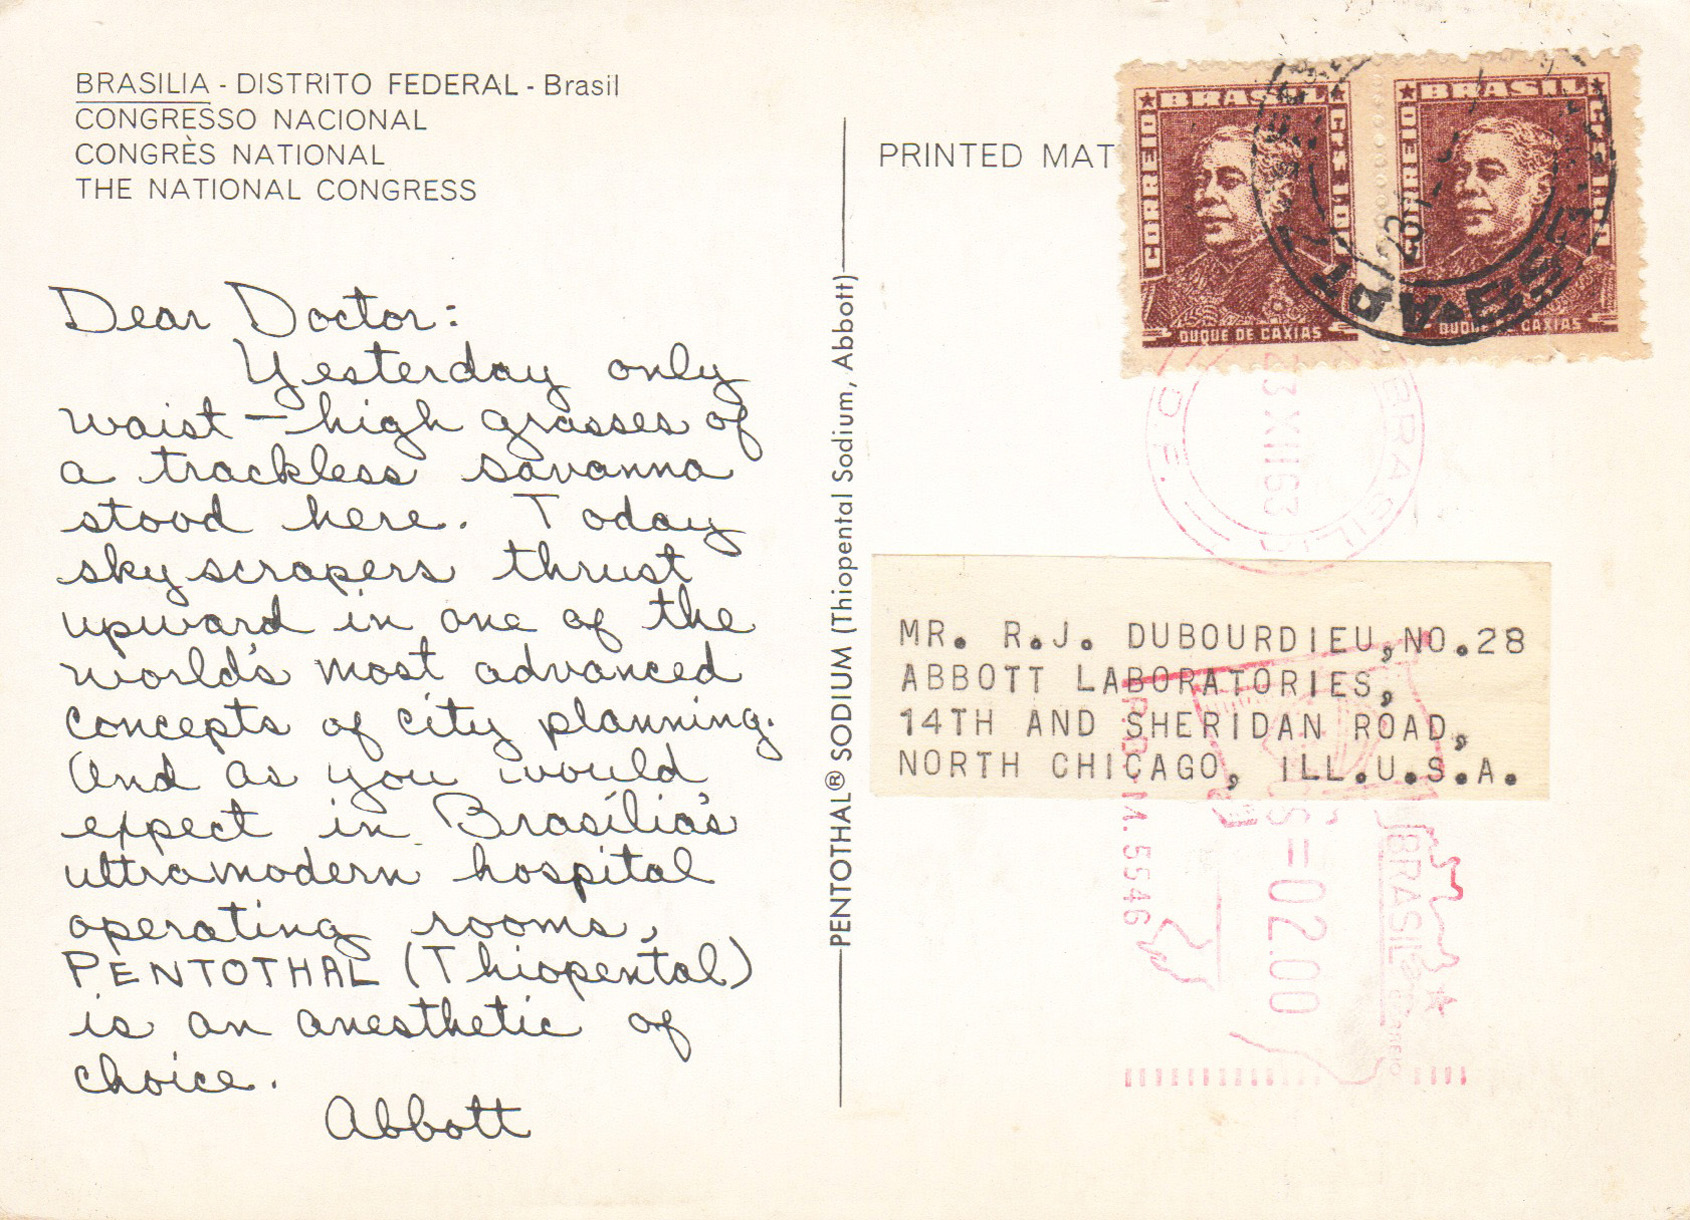 BRASILIA - DISTRITO FEDERAL - Brasil
CONGRESSO NACIONAL
CONGRÈS NATIONAL
THE NATIONAL CONGRESS
Dear Doctor:
Yesterday only
waist-high grasses of
a trackless savanna
stood here. Today
skyscrapers thrust
upward in one of the
world's most advanced
concepts of city planning.
And as you would
expect in Brasília's
ultramodern hospital
operating rooms,
PENTOTHAL (Thiopental)
is an anesthetic of
choice.
Abbott
PENTOTHAL® SODIUM (Thiopental Sodium, Abbott)
PRINTED MAT
BRASIL
CORREIO
DUQUE DE CAXIAS
BRASIL
CORREIO
DUQUE DE CAXIAS
23 XII 63
BRASIL
D.F.
MR. R.J. DUBOURDIEU, NO.28
ABBOTT LABORATORIES,
14TH AND SHERIDAN ROAD,
NORTH CHICAGO, ILL.U.S.A.
M.5546
S=02.00
BRASIL